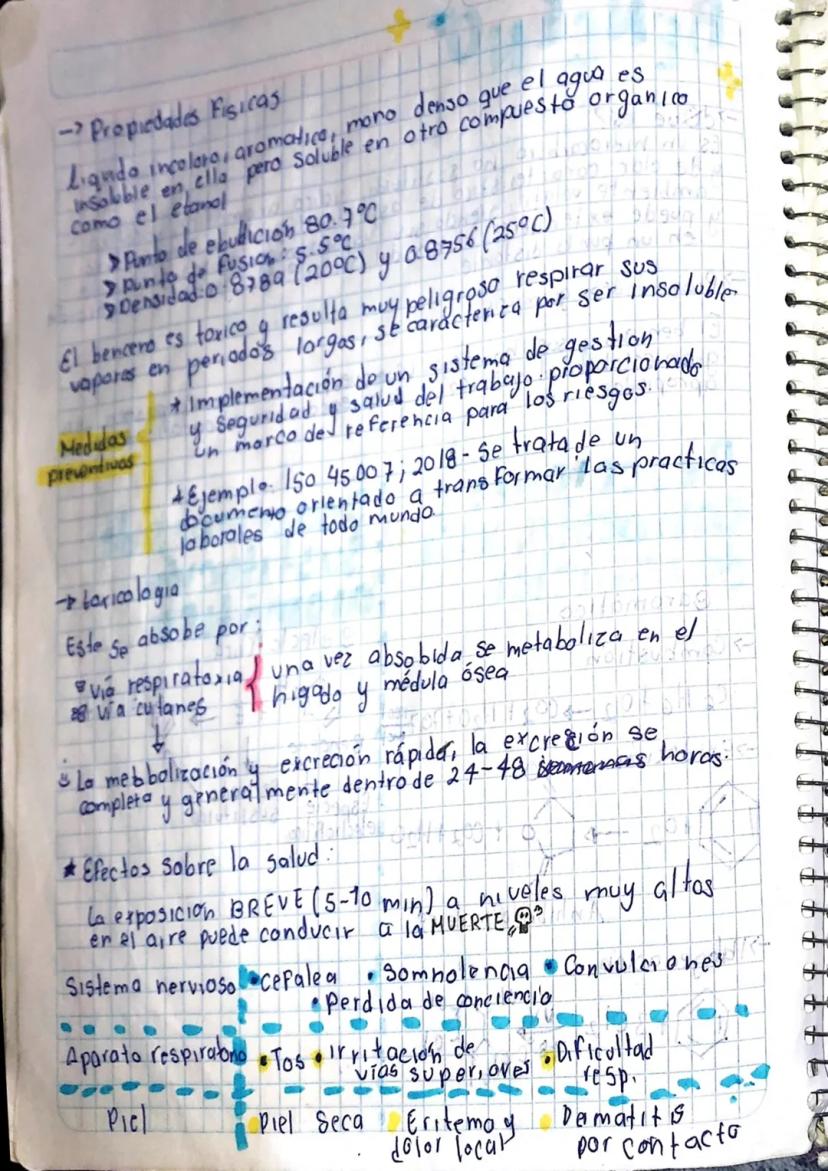 → Propiedades Fisicas
Liquido incoloro, aromatico, mono denso que el agua es
insolbble en ella pero soluble en otro compuesto organico
como el etanol
> Punto de ebullición 80.7°C
> punto de fusion: 5.5°C
> Densidad: 0.8789 (20°C) y 0.8756 (25°C)
El benceno es toxico y resulta muy peligroso respirar sus
vapores en periodos largos, se caracteriza por ser insoluble
Medidas preventivas
* Implementación de un sistema de gestion
y seguridad y salud del trabajo proporcionado
un marco de referencia para los riesgos.
* Ejemplo. ISO 45007; 2018 - Se trata de un
documento orientado a transformar las practicas
laborales de todo mundo.
→ toxicologia
Este se absobe por:
via respiratoria
via cutanes
una vez absobida se metaboliza en el
higado y médula ósea
↓
La metbolización y excreción rápida, la excreción se
completa y generalmente dentro de 24-48 horas.
* Efectos sobre la salud:
La exposicion BREVE (5-10 min) a niveles muy altos
en el aire puede conducir a la MUERTE
Sistema nervioso • Cefalea • Somnolencia • Convulciones
• Perdida de conciencia
Aparato respiratorio • Tos • irritación de • Dificultad
vias superiores resp.
Piel • Piel Seca • Eritema y • Dermatitis
dolor local por contacto